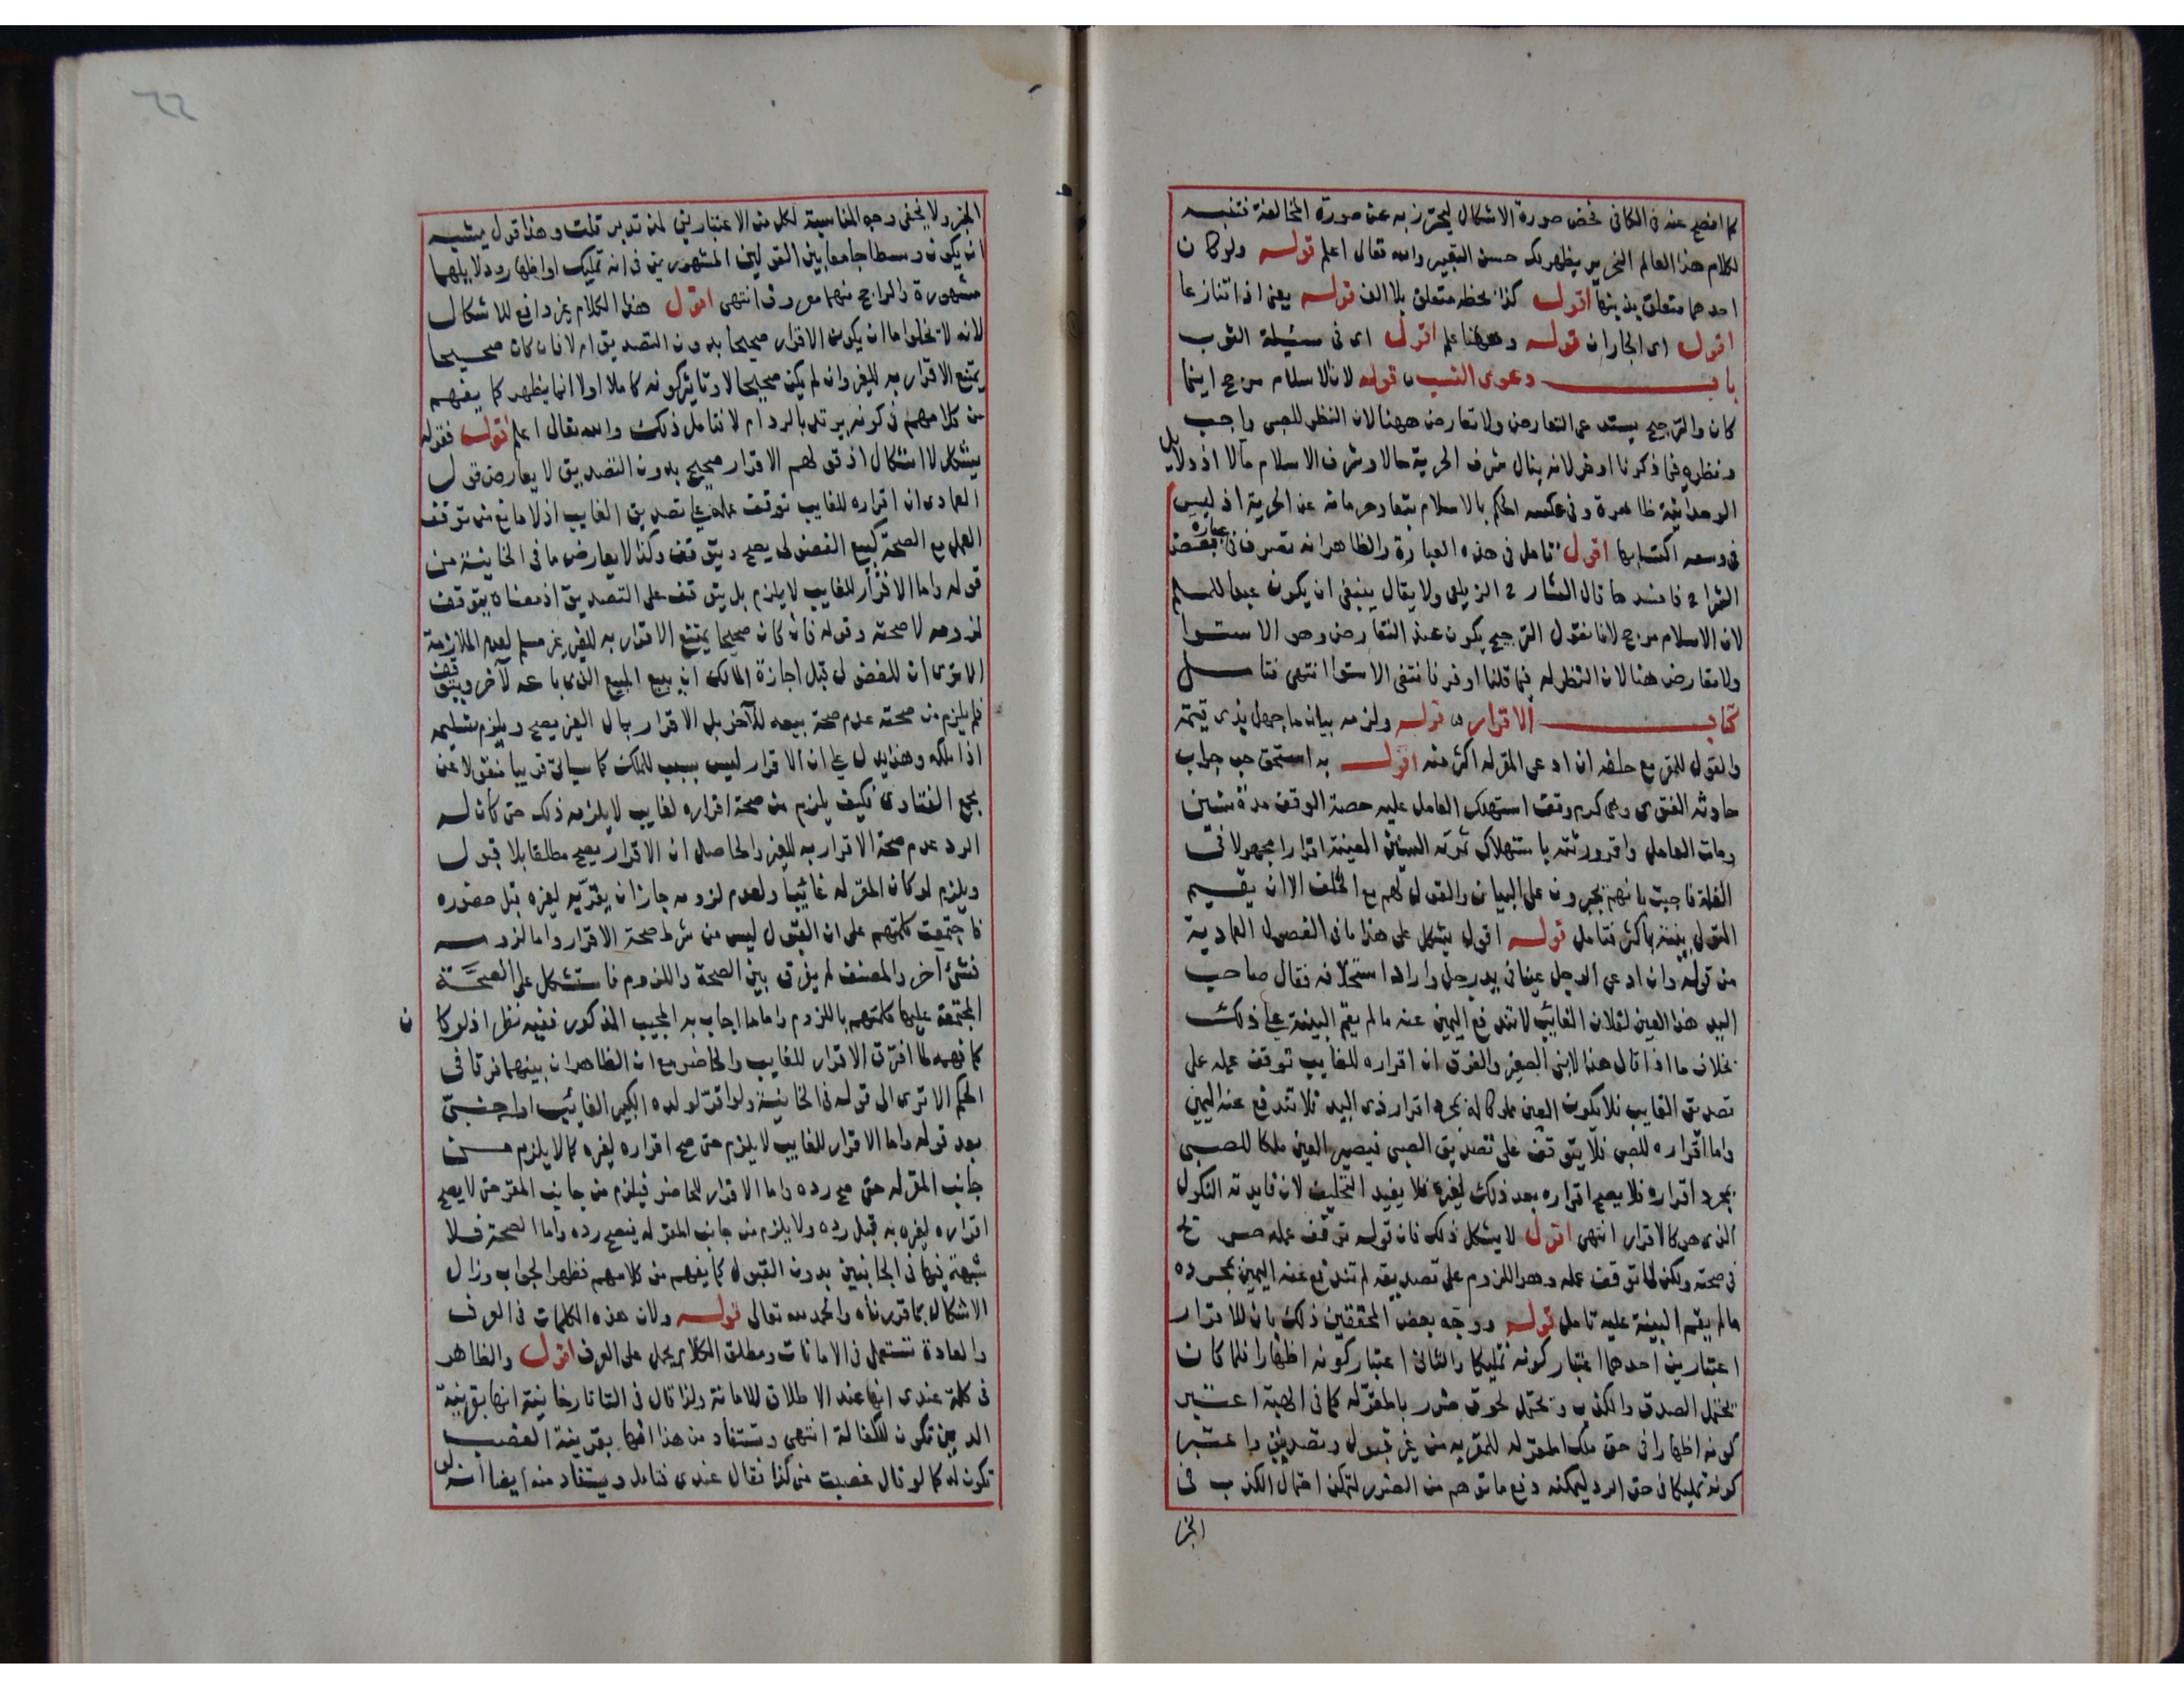 كما افصح عنه فى الكافى فخص صورة الاشكال ليحترز به عن صورة المخالفة فتنبه
لكلام هذا العالم النحرير يظهر لك حسن التعبير والله تعالى اعلم قوله ولو كان
احدهما متعلق بذنبها اقول كذا بخطه متعلق بلا الف قوله يعنى اذا تنازعا
اقول اى الجاران قوله وههنا علم اقول اى فى مسئلة الثوب
باب دعوى النسب قوله لان الاسلام مرجح اينما
كان والترجيح يستدعى التعارض ولا تعارض ههنا لان النظر للصبى واجب
ونظره فيما ذكرنا اوفر لانه ينال شرف الحرية حالا وشرف الاسلام مآلا اذ دلايل
الوحدانية ظاهرة وفى عكسه الحكم بالاسلام تبعا وحرمانه عن الحرية اذ ليس
فى وسعه اكتسابها اقول تامل فى هذه العبارة والظاهر انه تصرف فى عبارة بعض
الشراح فافسدها قال الشارح الزيلعى ولا يقال ينبغى ان يكون عبدا للمسلم
لان الاسلام مرجح لانا نقول الترجيح يكون عند التعارض وهو الاستوا
ولا تعارض هنا لان النظر له فيما قلنا اوفر فانتفى الاستوا انتهى فتامل
كتاب الاقرار قوله ولزمه بيان ما جهل بذى قيمة
والقول للمقر مع حلفه ان ادعى المقر له اكثر منه اقول به استحق جواب
حادثة الفتوى وهى كرم وقف استهلك العامل عليه حصة الوقف مدة سنين
ومات العامل واقر ورثته باستهلاك ثمرته السنين المعينة اقرارا مجهولا فى
الغلة فاجبت بانهم يجبرون على البيان والقول لهم مع الحلف الا ان يقيم
المتولى بينة باكثر فتامل قوله اقول يشكل على هذا ما فى الفصول العمادية
من قوله وان ادعى الرجل عينا فى يد رجل واراد استحلافه فقال صاحب
اليد هذا العين لفلان الغائب لا تندفع اليمين عنه ما لم يقم البينة على ذلك
بخلاف ما اذا قال هذا لابنى الصغير والفرق ان اقراره للغايب توقف عمله على
تصديق الغايب فلا يكون العين مملوكا له بمجرد اقرار ذى اليد فلا تندفع عنه اليمين
واما اقراره للصبى فلا يتوقف على تصديق الصبى فيصير العين ملكا للصبى
بمجرد اقراره فلا يصح اقراره بعد ذلك لغيره فلا يفيد التحليف لان فايدته النكول
الذى هو كالاقرار انتهى اقول لا يشكل ذلك فان قوله توقف عمله صريح
فى صحته ولكن لما توقف عمله وهو اللزوم على تصديقه لم تندفع عنه اليمين بمجرده
ما لم يقم البينة عليه تامل قوله ووجه بعض المحققين ذلك بان للاقرار
اعتبارين احدهما اعتبار كونه تمليكا والثانى اعتبار كونه اظهارا فلما كان
يحتمل الصدق والكذب ويحتمل لحوق ضرر بالمقر له كما فى الهبة اعتبر
كونه اظهارا فى حق ملك المقر له للمقر به من غير قبول وتصديق واعتبر
كونه تمليكا فى حق الرد ليمكنه دفع ما توهم من الضرر لتمكن احتمال الكذب فى
الخبر
٦٦
الخبر ولا يخفى وجه المناسبة لكل من الاعتبارين لمن تدبر قلت وهذا قول يشبه
ان يكون وسطا جامعا بين القولين المشهورين فى انه تمليك او اظهار ودلايلهما
مشهورة والراجح منهما معروف انتهى اقول هذا الكلام غير دافع للاشكال
لانه لا تخلوا ما ان يكون الاقرار صحيحا بدون التصديق ام لا فان كان صحيحا
يمتنع الاقرار به للغير وان لم يكن صحيحا لا وتاثير كونه كاملا اولا انما يظهر كما يفهم
من كلامهم فى كونه يرتد بالرد ام لا فتامل ذلك والله تعالى اعلم قوله فقوله
يشكل لا اشكال اذ قولهم الاقرار صحيح بدون التصديق لا يعارض قول
العمادى ان اقراره للغايب توقف عمله على تصديق الغايب اذ لا مانع من توقف
العمل مع الصحة كبيع الفضولى يصح ويتوقف وكذا لا يعارض ما فى الخانية من
قوله واما الاقرار للغايب لا يلزم بل يتوقف على التصديق اذ معناه يتوقف
لزومه لا صحته وقوله فان كان صحيحا يمتنع الاقرار به للغير غير مسلم لعدم الملازمة
الا ترى ان للفضولى قبل اجازة المالك ان يبيع المبيع الذى باعه لآخر ويتوقف
فلم يلزم من صحته عدم صحة بيعه للآخر بل الاقرار بمال الغير يصح ويلزم تسليمه
اذا ملكه وهذا يدل على ان الاقرار ليس بسبب للملك كما سياتى قريبا منقولا عن
مجمع الفتاوى فكيف يلزم من صحة اقراره لغايب لا يلزمه ذلك حتى كان له
الرد عدم صحة الاقرار به للغير والحاصل ان الاقرار يصح مطلقا بلا قبول
ويلزم لو كان المقر له غائبا ولعدم لزومه جاز ان يقر به لغيره قبل حضوره
فاجتمعت كلمتهم على ان القبول ليس من شرط صحة الاقرار واما لزومه
فشئ آخر والمصنف لم يفرق بين الصحة واللزوم فاستشكل على الصحة
المجتمعة عليها كلمتهم باللزوم واما ما اجاب به المجيب المذكور ففيه نظر اذ لو كان
كما فهمه لما افترق الاقرار للغايب والحاضر مع ان الظاهر ان بينهما فرقا فى
الحكم الا ترى الى قوله فى الخانية ولو اقر لولده الكبير الغائب او اجنبى
بعد قوله واما الاقرار للغايب لا يلزم حتى صح اقراره لغيره كما لا يلزم من
جانب المقر له حتى صح رده واما الاقرار للحاضر فيلزم من جانب المقر حتى لا يصح
اقراره لغيره به قبل رده ولا يلزم من جانب المقر له فيصح رده واما الصحة فلا
شبهة فيها فى الجانبين بدون القبول كما يفهم من كلامهم فظهر الجواب وزال
الاشكال بما قررناه والحمد لله تعالى قوله ولان هذه الكلمات فى العرف
والعادة تستعمل فى الامانات ومطلق الكلام يحمل على العرف اقول والظاهر
فى كلمة عندى انها عند الاطلاق للامانة ولذا قال فى التاتارخانية انها بقرينة
الدين تكون للكفالة انتهى ويستفاد من هذا انها بقرينة الغصب
تكون له كما لو قال غصبت منى كذا فقال عندى فتامل ويستفاد منه ايضا انه لو